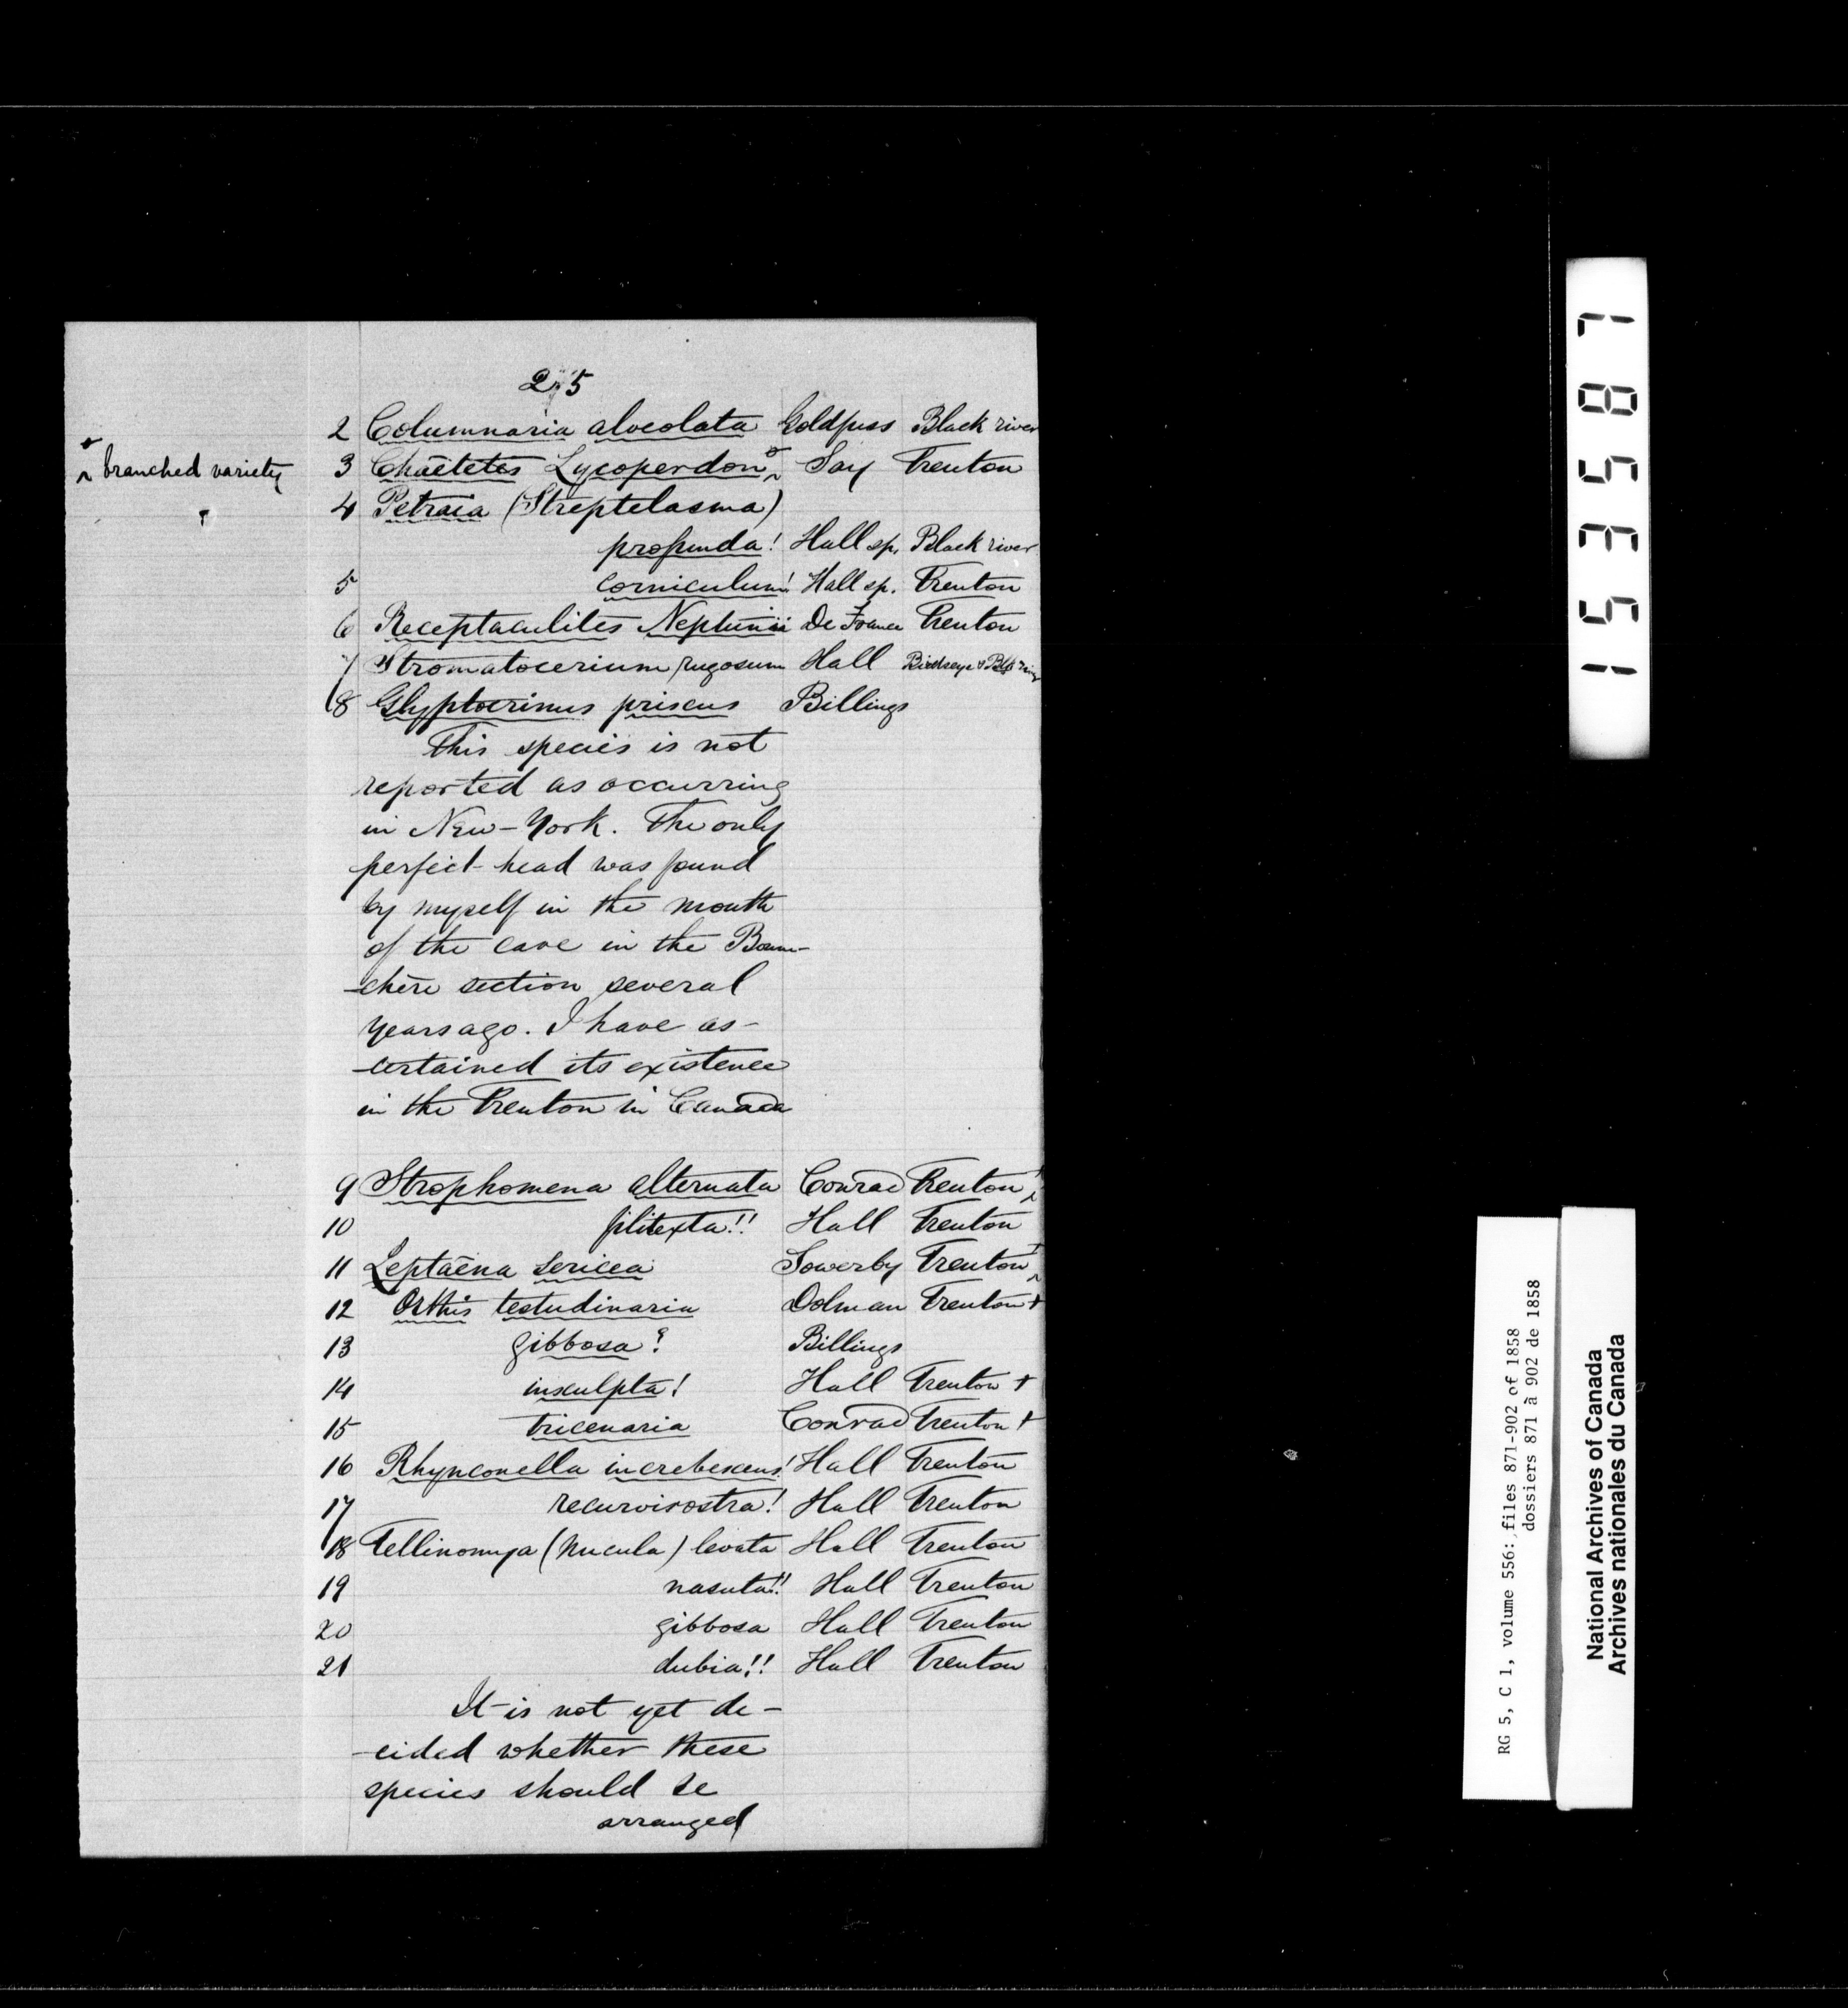 25
2 Columnaria alveolata Goldfuss Black river
^ branched variety
3 Chaëtetes Lycoperdon ^ Say Trenton
4 Petraia (Streptelasma)
profunda! Hall sp. Black river
5 corniculum! Hall sp. Trenton
6 Receptaculites Neptunii De France Trenton
7 Stromatocerium rugosum Hall Birdseye & Blk riv
8 Glyptocrinus priscus Billings
This species is not
reported as occurring
in New-York. The only
perfect head was found
by myself in the mouth
of the cave in the Bonne-
-chère section several
years ago. I have as-
-certained its existence
in the Trenton in Canada
9 Strophomena alternata Conrad Trenton +
10 filitexta!! Hall Trenton
11 Leptaëna sericea Sowerby Trenton +
12 Orthis testudinaria Dolman Trenton +
13 gibbosa? Billings
14 insculpta! Hall Trenton +
15 tricenaria Conrad Trenton +
16 Rhynconella increbescens! Hall Trenton
17 recurvirostra! Hall Trenton
18 Tellinomya (Nucula) levata Hall Trenton
19 nasuta!! Hall Trenton
20 gibbosa Hall Trenton
21 dubia!! Hall Trenton
It is not yet de-
-cided whether these
species should be
arranged
153587
RG 5, C 1, volume 556: files 871-902 of 1858
dossiers 871 à 902 de 1858
National Archives of Canada
Archives nationales du Canada